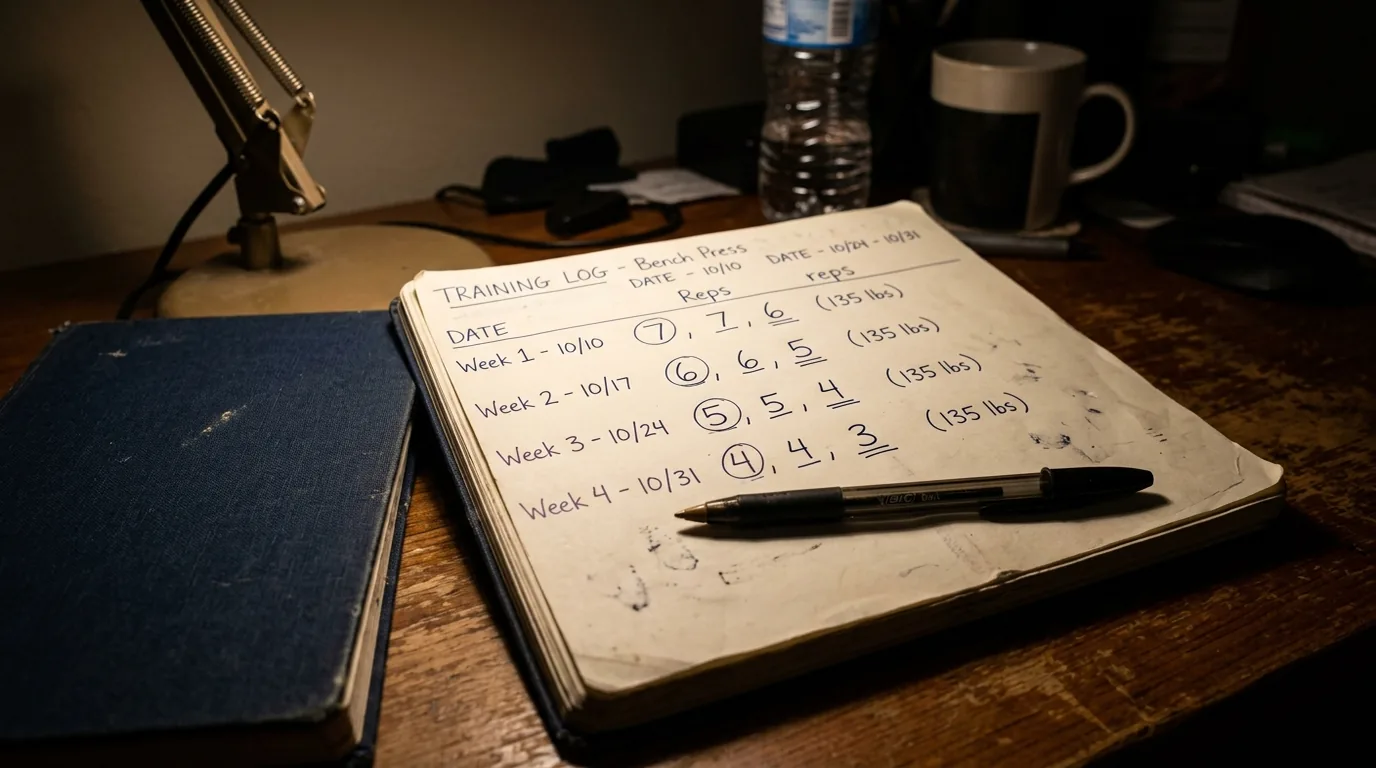 TRAINING LOG - Bench Press
DATE - 10/10 DATE - 10/24 - 10/31
DATE Reps reps
Week 1 - 10/10 7, 7, 6 (135 lbs)
Week 2 - 10/17 6, 6, 5 (135 lbs)
Week 3 - 10/24 5, 5, 4 (135 lbs)
Week 4 - 10/31 4, 4, 3 (135 lbs)